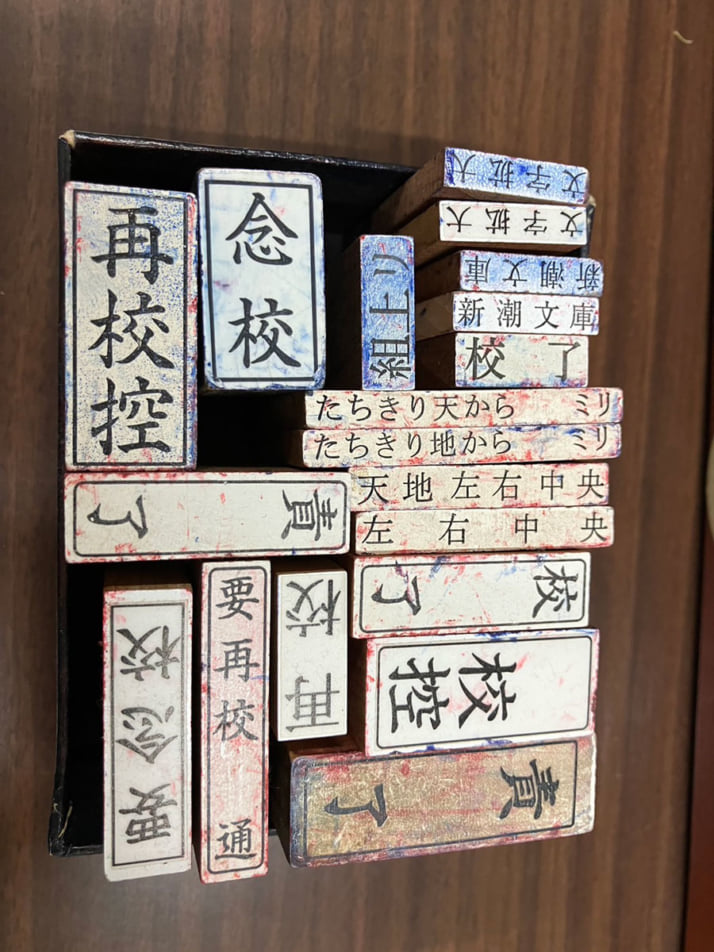 再校控
念校
組上り
文字拡大
文字拡大
新潮文庫
新潮文庫
校 了
たちきり天から ミリ
たちきり地から ミリ
天地 左右 中央
左 右 中 央
責了
校了
校控
責了
要念校
要再校 通
再校